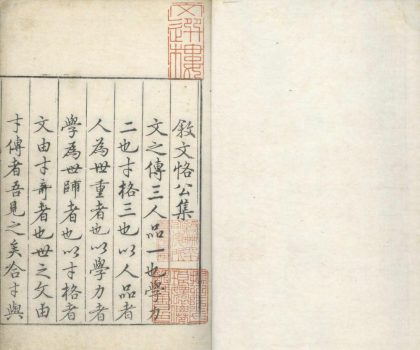 文選樓
敘文恪公集
文之傳三人品一也學力
二也才格三也以人品者
人為世重者也以學力者
學為世師者也以才格者
文由才竒者也世之文由
才傳者吾見之矣合才與